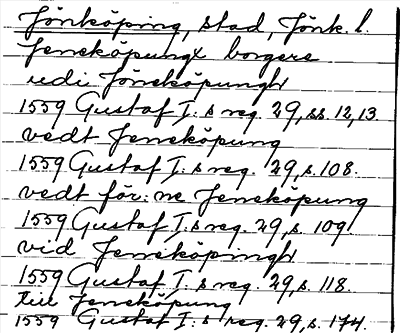 Jönköping, stad, Jönk. l.
Jeneköpungx borgere
udi Jöneköpungh
1559 Gustaf I:s reg. 29, ss. 12, 13.
vedt Jeneköpung
1559 Gustaf I:s reg. 29, s. 108.
vedt för:ne Jeneköpung
1559 Gustaf I:s reg. 29, s. 109
vid Jeneköpingh
1559 Gustaf I:s reg. 29, s. 118.
till Jeneköpung
1559 Gustaf I:s reg. 29, s. 174.